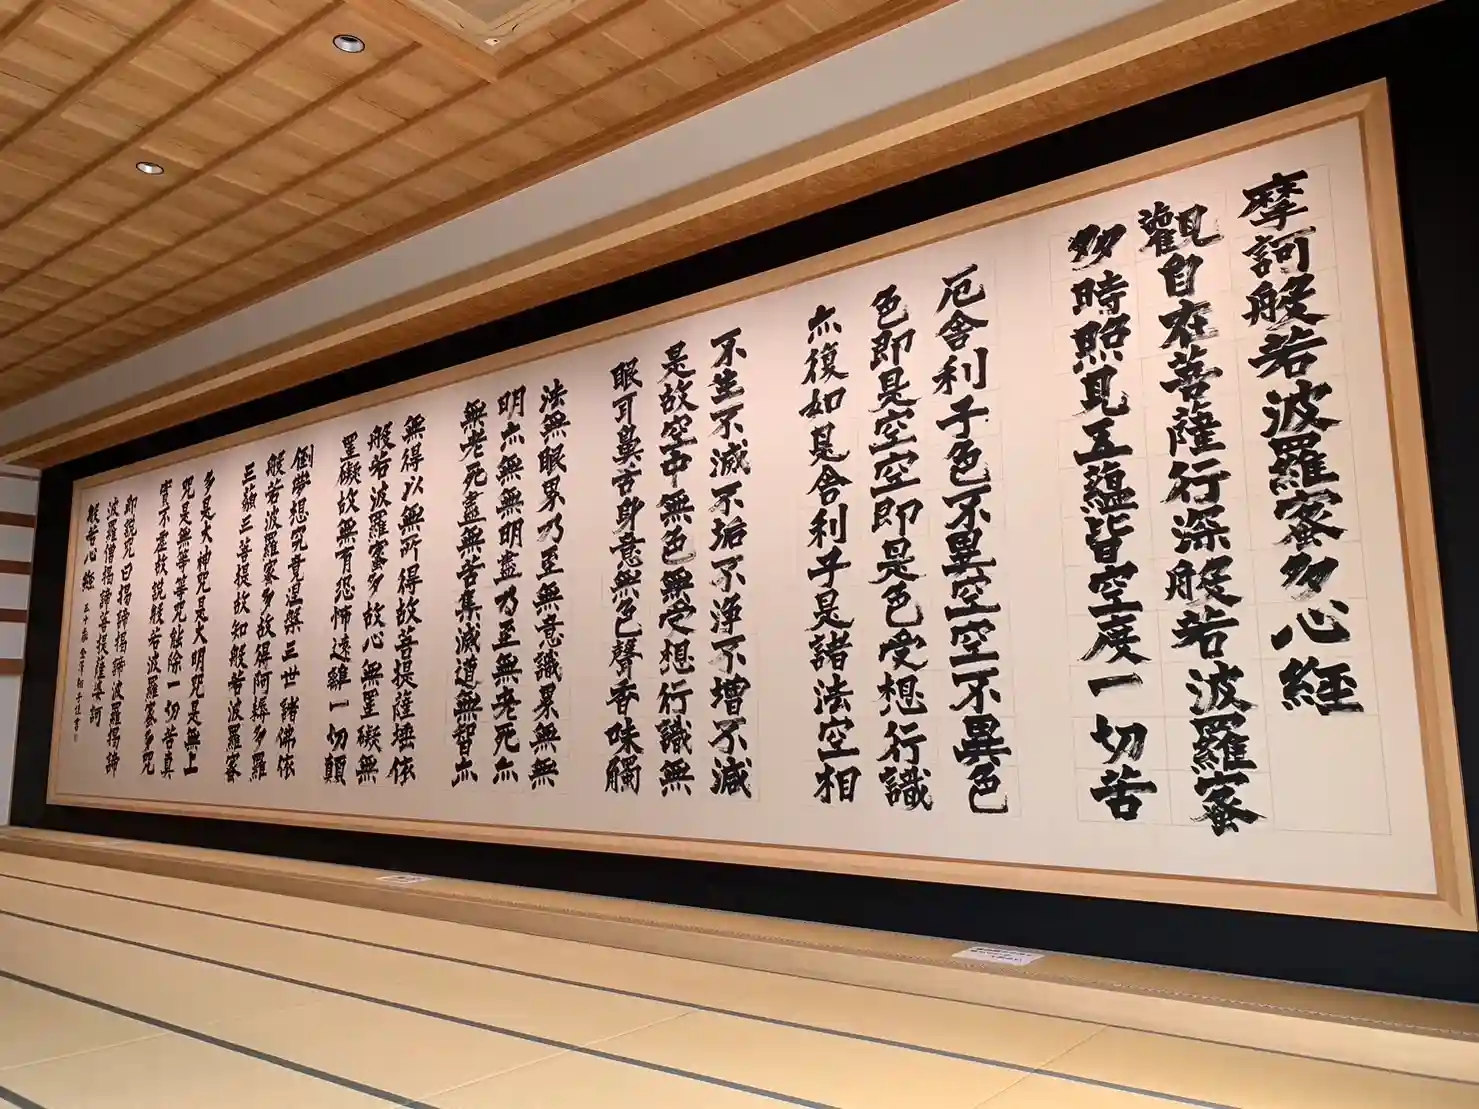 摩訶般若波羅蜜多心経
觀自在菩薩行深般若波羅蜜
多時照見五蘊皆空度一切苦
厄舎利子色不異空空不異色
色即是空空即是色受想行識
亦復如是舎利子是諸法空相
不生不滅不垢不浄不増不減
是故空中無色無受想行識無
眼耳鼻舌身意無色聲香味觸
法無眼界乃至無意識界無無
明亦無無明盡乃至無老死亦
無老死盡無苦集滅道無智亦
無得以無所得故菩提薩埵依
般若波羅蜜多故心無罣礙無
罣礙故無有恐怖遠離一切顛
倒夢想究竟涅槃三世諸佛依
般若波羅蜜多故得阿耨多羅
三藐三菩提故知般若波羅蜜
多是大神咒是大明咒是無上
咒是無等等咒能除一切苦真
實不虚故説般若波羅蜜多咒
即説咒曰揭諦揭諦波羅揭諦
波羅僧揭諦菩提薩婆訶
般若心経 金澤翔子謹書